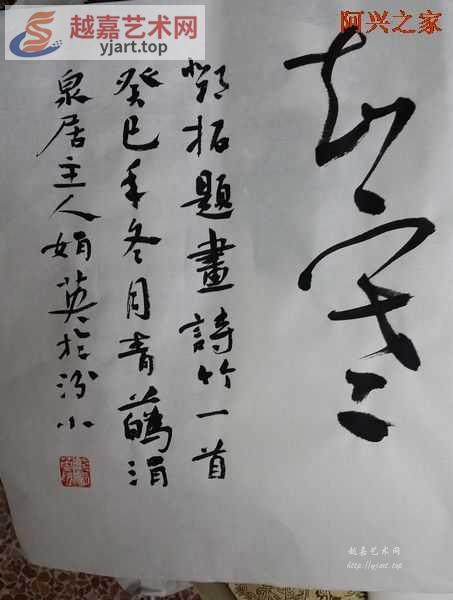 越嘉艺术网
yjart.top
阿兴之家
寒
拓題畫詩竹一首
癸巳年冬月青涓
泉居主人娟英於汾
越嘉艺术网
http://yjart.top